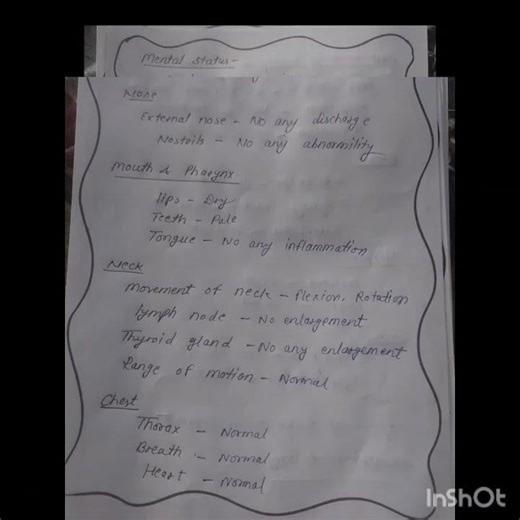 Mental status-
Nose
External nose - No any discharge
Nostrils - No any abnormility
Mouth & Pharynx
lips - Dry
Teeth - Pale
Tongue - No any inflammation
Neck
Movement of neck - flexion, Rotation
lymph node - No enlargement
Thyroid gland - No any enlargement
Range of motion - Normal
Chest
Thorax - Normal
Breath - Normal
Heart - Normal
InShOt